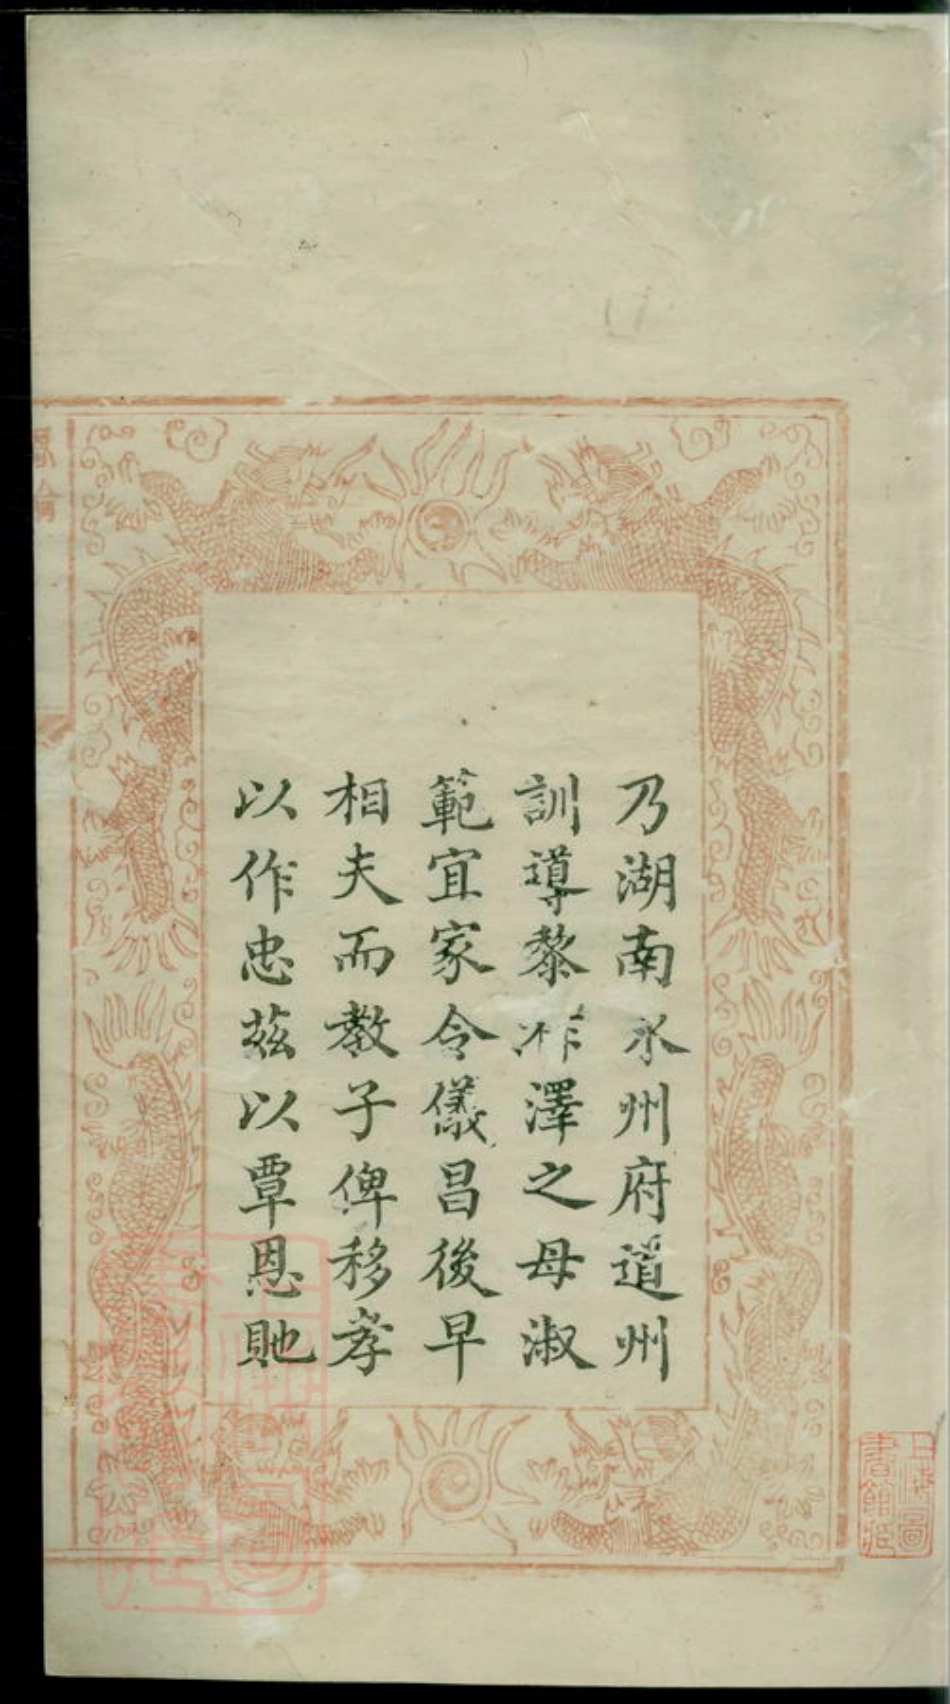 乃湖南永州府道州
訓導黎祚澤之母淑
範宜家令儀昌後早
相夫而教子俾移孝
以作忠茲以覃恩貤
上海圖
書館藏